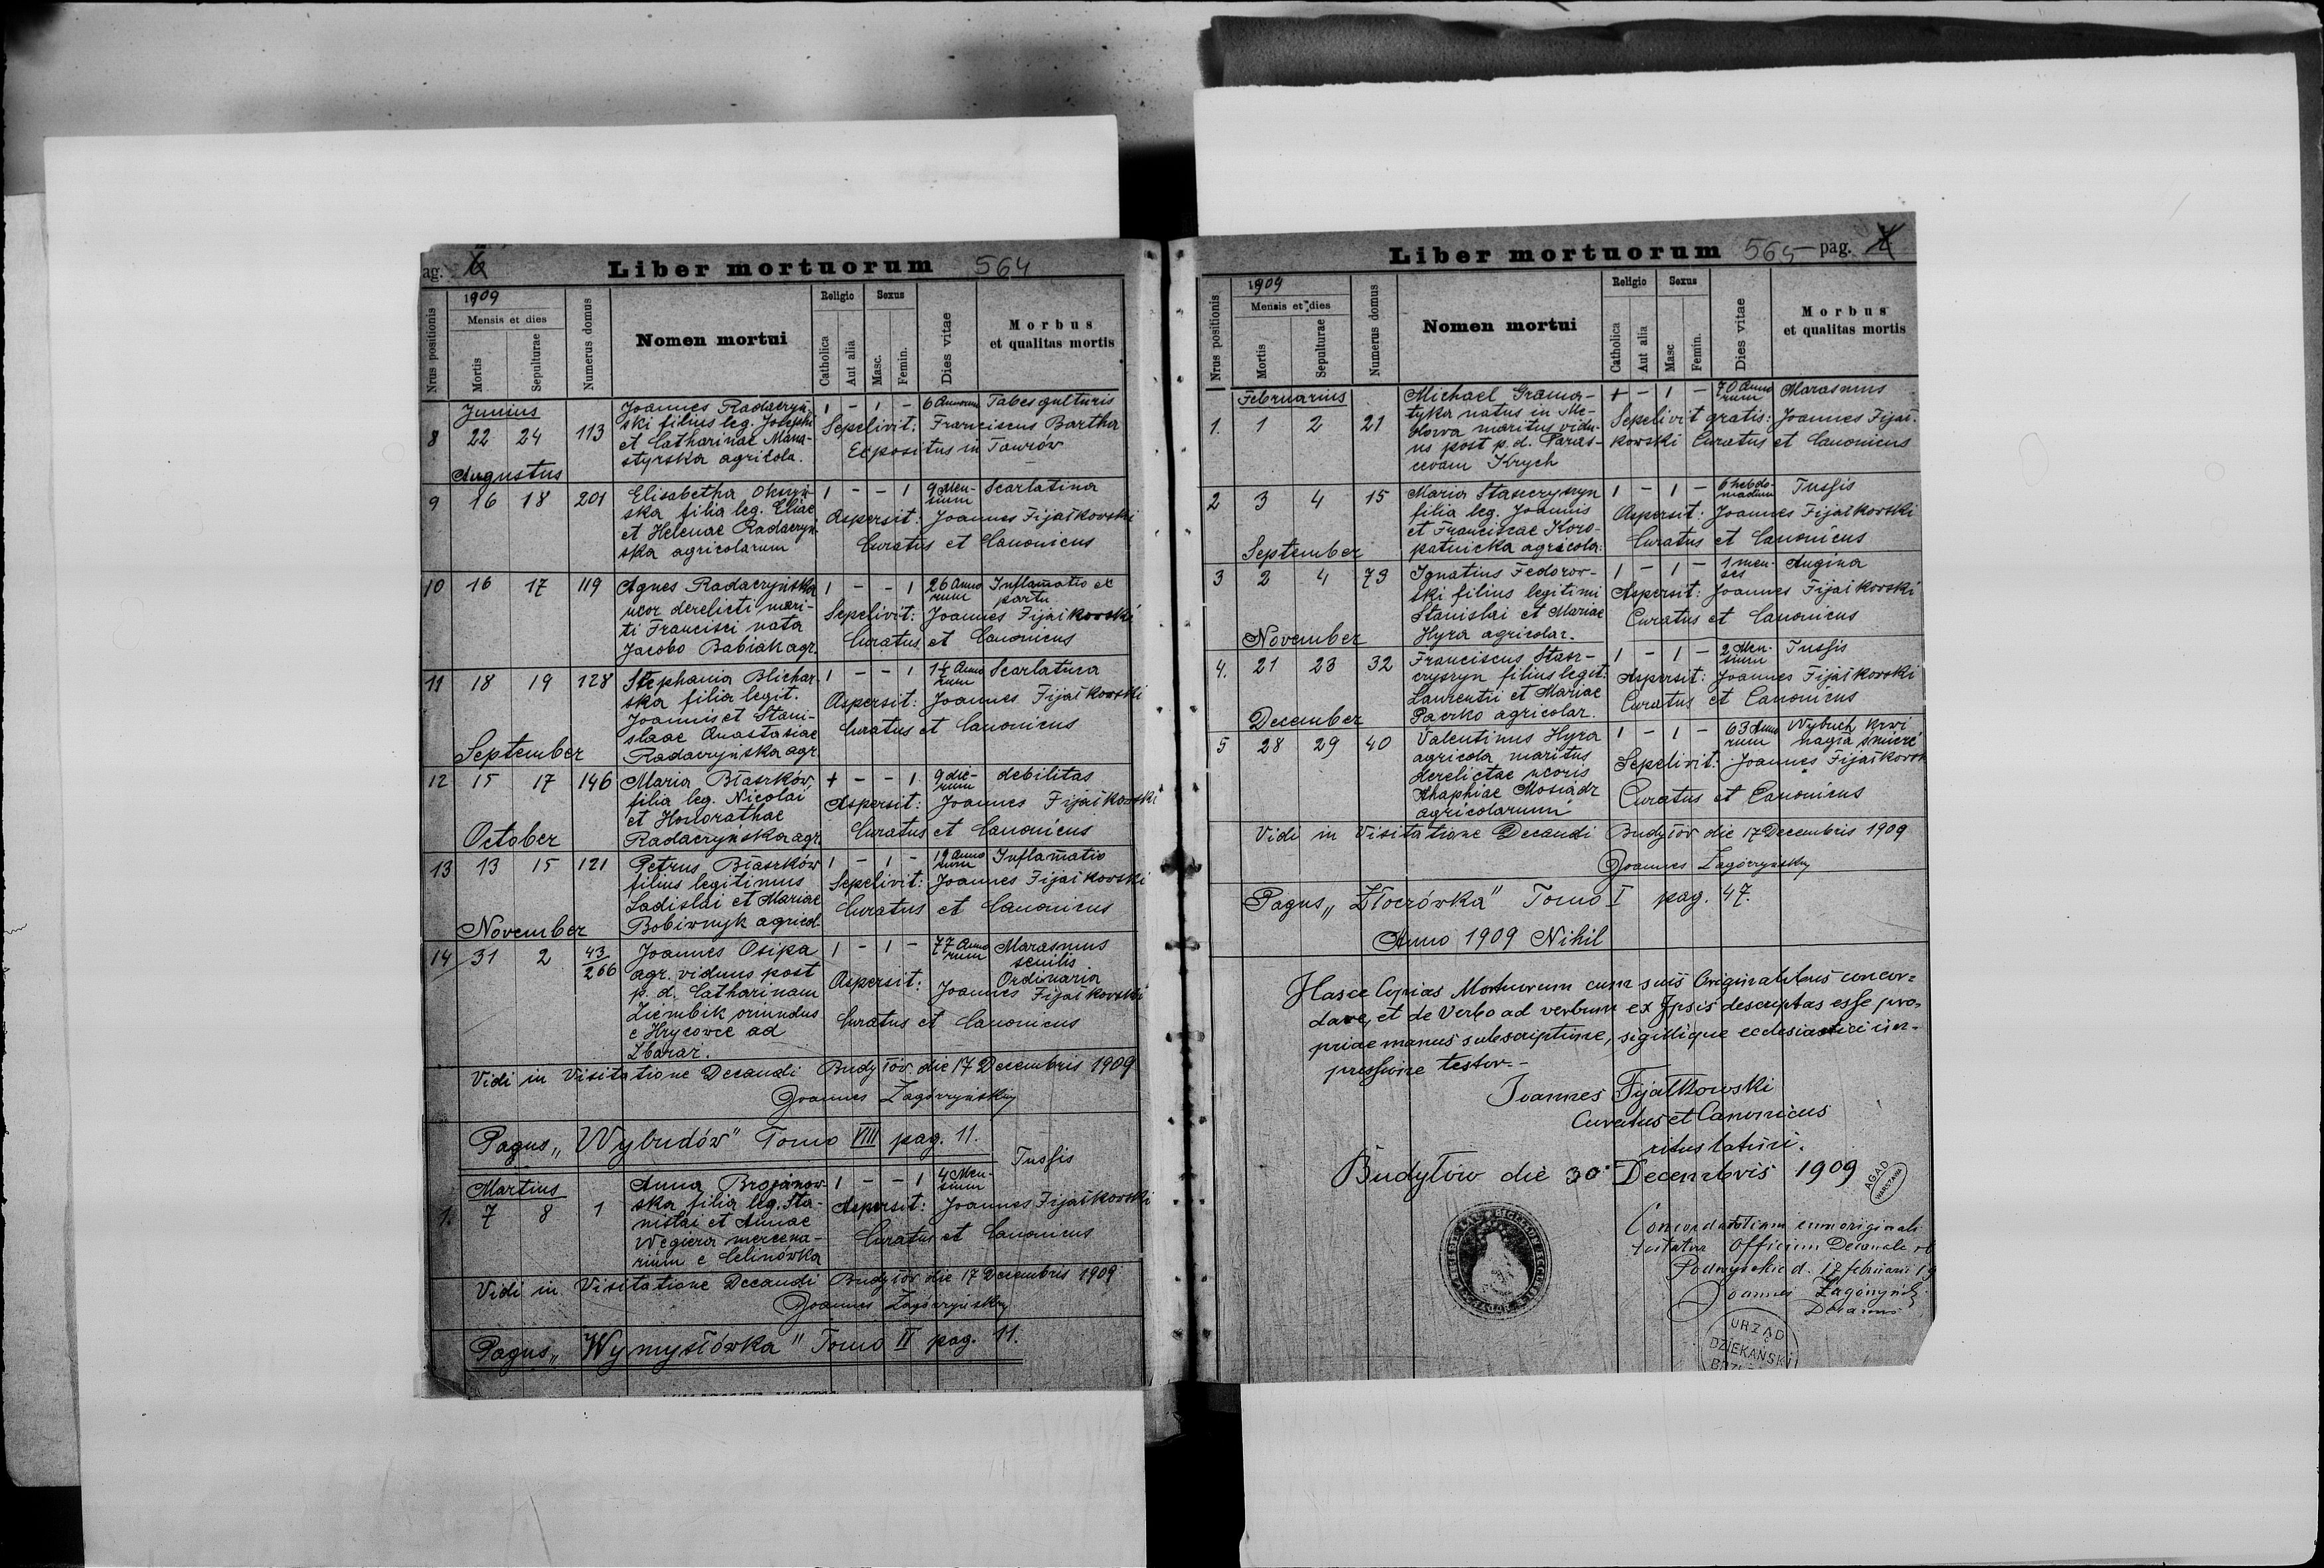 ag. 6 Liber mortuorum 564
Nrus positionis 1909 Mensis et dies Mortis Sepulturae Numerus domus Nomen mortui Religio Catholica Aut alia Sexus Masc. Femin. Dies vitae Morbus et qualitas mortis
Junius
8 22 24 113 Joannes Radaczyń- 1 - 1 - 6 Annorum Tabes gutturis
ski filius leg. Josephi Sepelivit: Franciscus Bartha
et Catharinae Mana- Expositus in Taurów
styrska agricola.
Augustus
9 16 18 201 Elisabetha Okuń- 1 - - 1 9 Men- Scarlatina
sium
ska filia leg. Eliae Aspersit: Joannes Fijałkowski
et Helenae Radaczyń- Curatus et Canonicus
ska agricolarum
10 16 17 119 Agnes Radaczyńska 1 - - 1 26 Anno Inflamatio ex
rum partu
uxor derelicti mari- Sepelivit: Joannes Fijałkowski
ti Francisci nata Curatus et Canonicus
Jacobo Babiak agr.
11 18 19 128 Stephania Blichar- 1 - - 1 Anno Scarlatina
rum
ska filia legit. Aspersit: Joannes Fijałkowski
Joannis et Stani- Curatus et Canonicus
slaae Anastasiae
Radaczyńska agr.
September
12 15 17 146 Maria Błaszków + - - 1 9 die- debilitas
rum
filia leg. Nicolai Aspersit: Joannes Fijałkowski
et Honorathae Curatus et Canonicus
Radaczyńska agr.
October
13 13 15 121 Petrus Błaszków 1 - 1 - 19 Anno Inflamatio
rum
filius legitimus Sepelivit: Joannes Fijałkowski
Ladislai et Mariae Curatus et Canonicus
Bobiwnyk agricol.
November
14 31 2 43/266 Joannes Osipa 1 - 1 - 77 Anno Marasmus
rum senilis
agr. viduus post Aspersit: Ordinaria
p. d. Catharinam Joannes Fijałkowski
Ziembik oriundus Curatus et Canonicus
e Hrycowce ad
Zbaraż.
Vidi in Visitatione Decanali Budyłów die 17 Decembris 1909
Joannes Zagórzyński
Pagus „Wybudów" Tomo VIII pag. 11.
Martius
1. 7 8 1 Anna Brojanow- 1 - - 1 4 Men- Tussis
sium
ska filia leg. Sta- Aspersit: Joannes Fijałkowski
nislai et Annae Curatus et Canonicus
Węgiera mercena-
rium e Celinówka
Vidi in Visitatione Decanali Budyłów die 17 Decembris 1909
Joannes Zagórzyński
Pagus „Wymysłówka" Tomo II pag. 11.
Liber mortuorum 565 pag. 7
Nrus positionis 1909 Mensis et dies Mortis Sepulturae Numerus domus Nomen mortui Religio Catholica Aut alia Sexus Masc Femin. Dies vitae Morbus et qualitas mortis
Februarius
1. 1 2 21 Michael Grama- + - 1 - 70 Anno Marasmus
rum
tyka natus in Me- Sepelivit gratis: Joannes Fijał-
blowa maritus vidu- kowski Curatus et Canonicus
us post p. d. Paras-
cevam Krych
2 3 4 15 Maria Stasczyszyn 1 - 1 - 6 hebdo- Tussis
madum
filia leg. Joannis Aspersit: Joannes Fijałkowski
et Franciscae Koro- Curatus et Canonicus
patnicka agricola.
September
3 2 4 79 Ignatius Fedorow- 1 - 1 - 1 men- Angina
ses
ski filius legitimi Aspersit: Joannes Fijałkowski
Stanislai et Mariae Curatus et Canonicus
Hyra agricolar.
November
4. 21 23 32 Franciscus Stasz- 1 - 1 - 2 Men- Tussis
sium
czyszyn filius legit. Aspersit: Joannes Fijałkowski
Laurentii et Mariae Curatus et Canonicus
Paczko agricolar.
December
5 28 29 40 Valentinus Hyra 1 - 1 - 63 Anno Wybuch krwi
rum nagła śmierć
agricola maritus Sepelivit: Joannes Fijałkowsk
derelictae uxoris Curatus et Canonicus
Ahaphiae Mosiądz
agricolarum
Vidi in Visitatione Decanali Budyłów die 17 Decembris 1909
Joannes Zagórzyński
Pagus „Złoczówka" Tomo I pag. 47.
Anno 1909 Nihil
Hasce Copias Mortuorum cum suis Originalibus concor=
dare, et de Verbo ad verbum ex Ipsis descriptas esse pro-
priae manus subscriptione, sigillique ecclesiastici im-
pressione testor.-
Joannes Fijałkowski
Curatus et Canonicus
ritus latini.
Budyłów die 30 Decembris 1909
AGAD
WARSZAWA
Concordantiam cum originali
testatur Officium Decanale
d. 17 februarii 19
Joannes Zagórzyński
Decanus
URZĄD
DZIEKAŃSKI